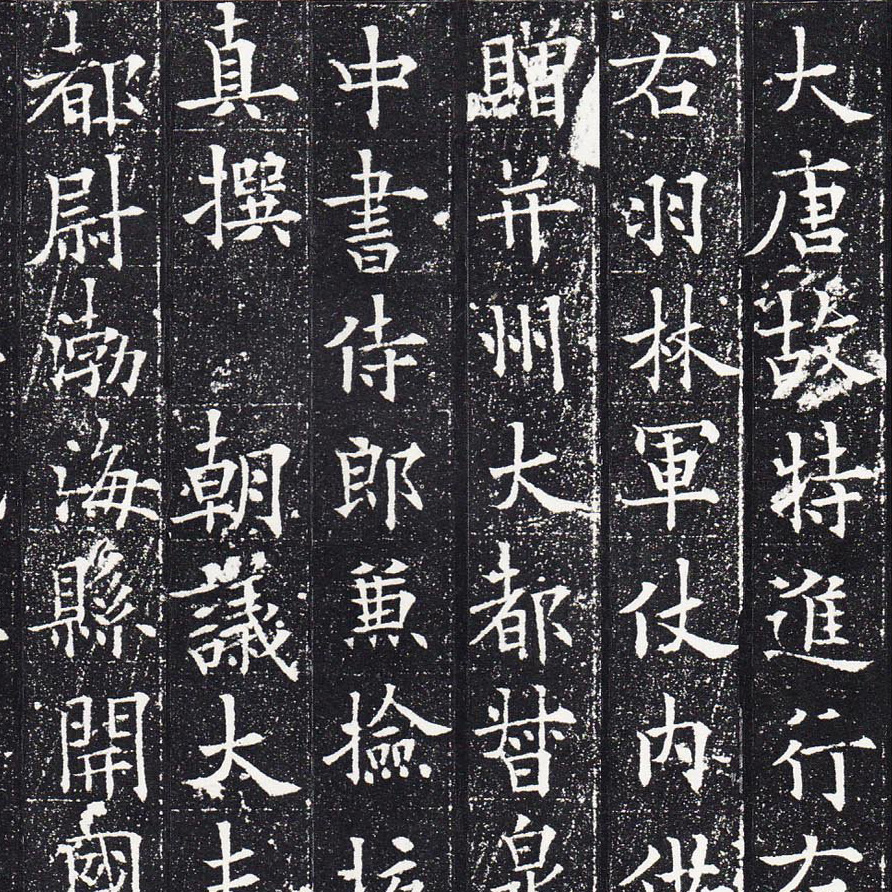 大唐故特進行右
右羽林軍仗内供
贈并州大都督泉
中書侍郎兼撿挍
真撰 朝議大夫
都尉渤海縣開國